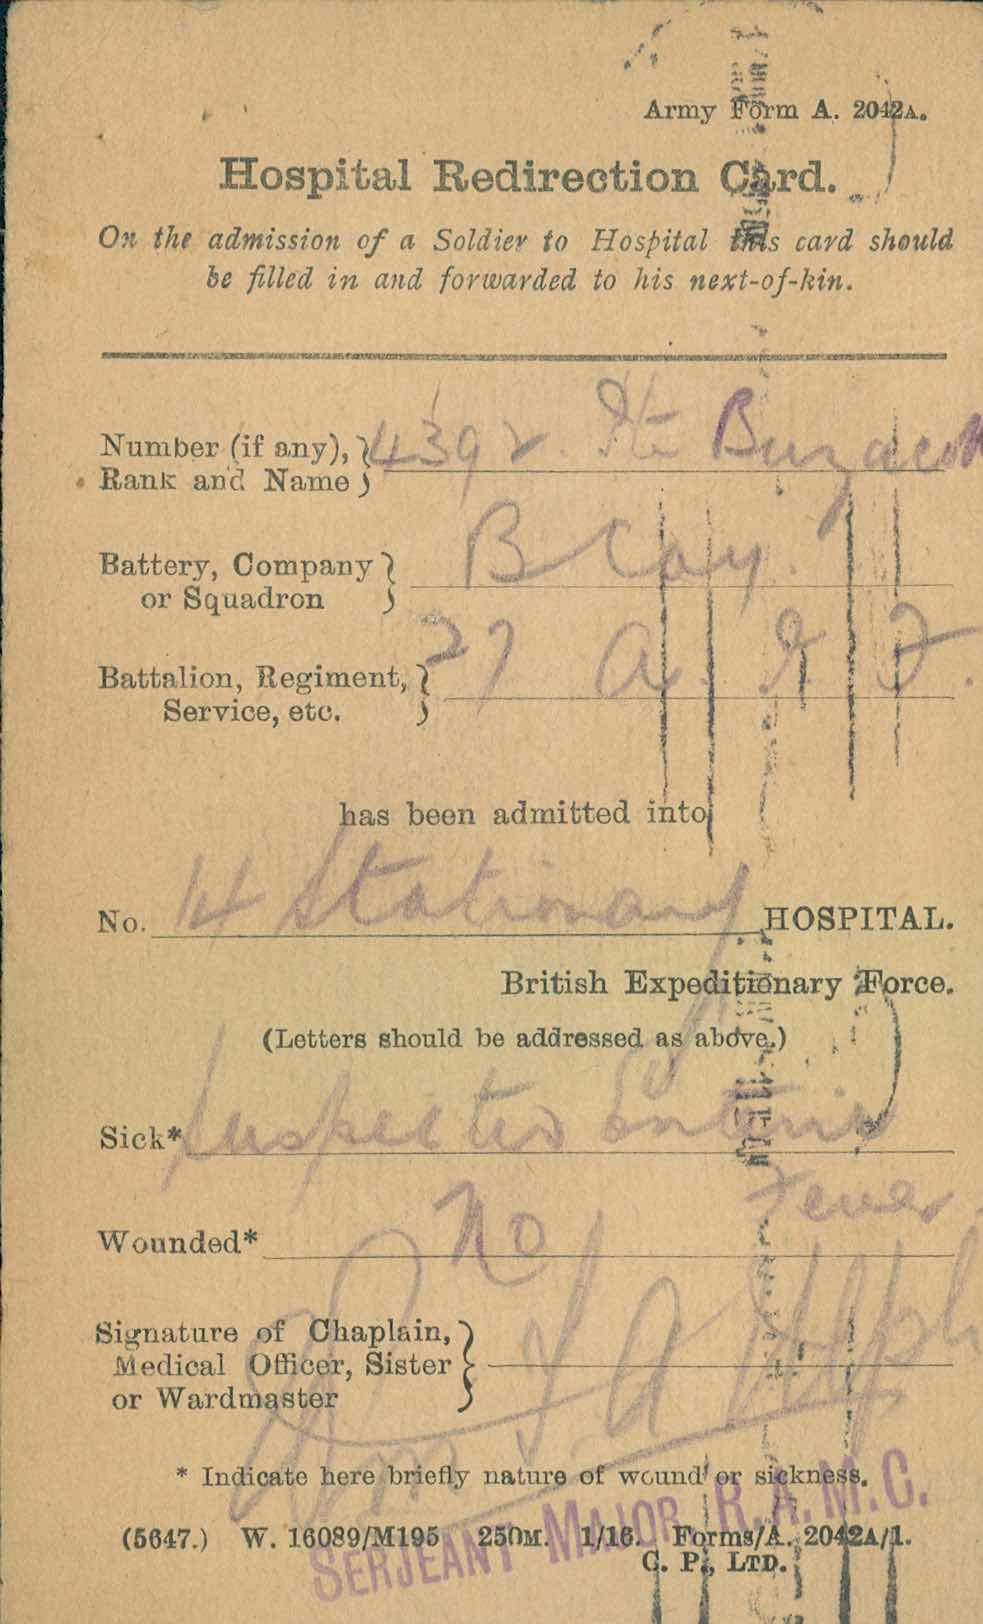 Army Form A. 2042A.
Hospital Redirection Card.
On the admission of a Soldier to Hospital this card should
be filled in and forwarded to his next-of-kin.
Number (if any), Rank and Name } 4392. Pte Buzacott
Battery, Company or Squadron } B Coy.
Battalion, Regiment, Service, etc. } 27 A. I. F.
has been admitted into
No. 14 Stationary HOSPITAL.
British Expeditionary Force.
(Letters should be addressed as above.)
Sick* Suspected Enteric
Fever
Wounded* No
Signature of Chaplain, Medical Officer, Sister or Wardmaster }
* Indicate here briefly nature of wound or sickness.
SERJEANT MAJOR R.A.M.C.
(5647.) W. 16089/M195 250M. 1/16. Forms/A. 2042A/1.
C. P., LTD.